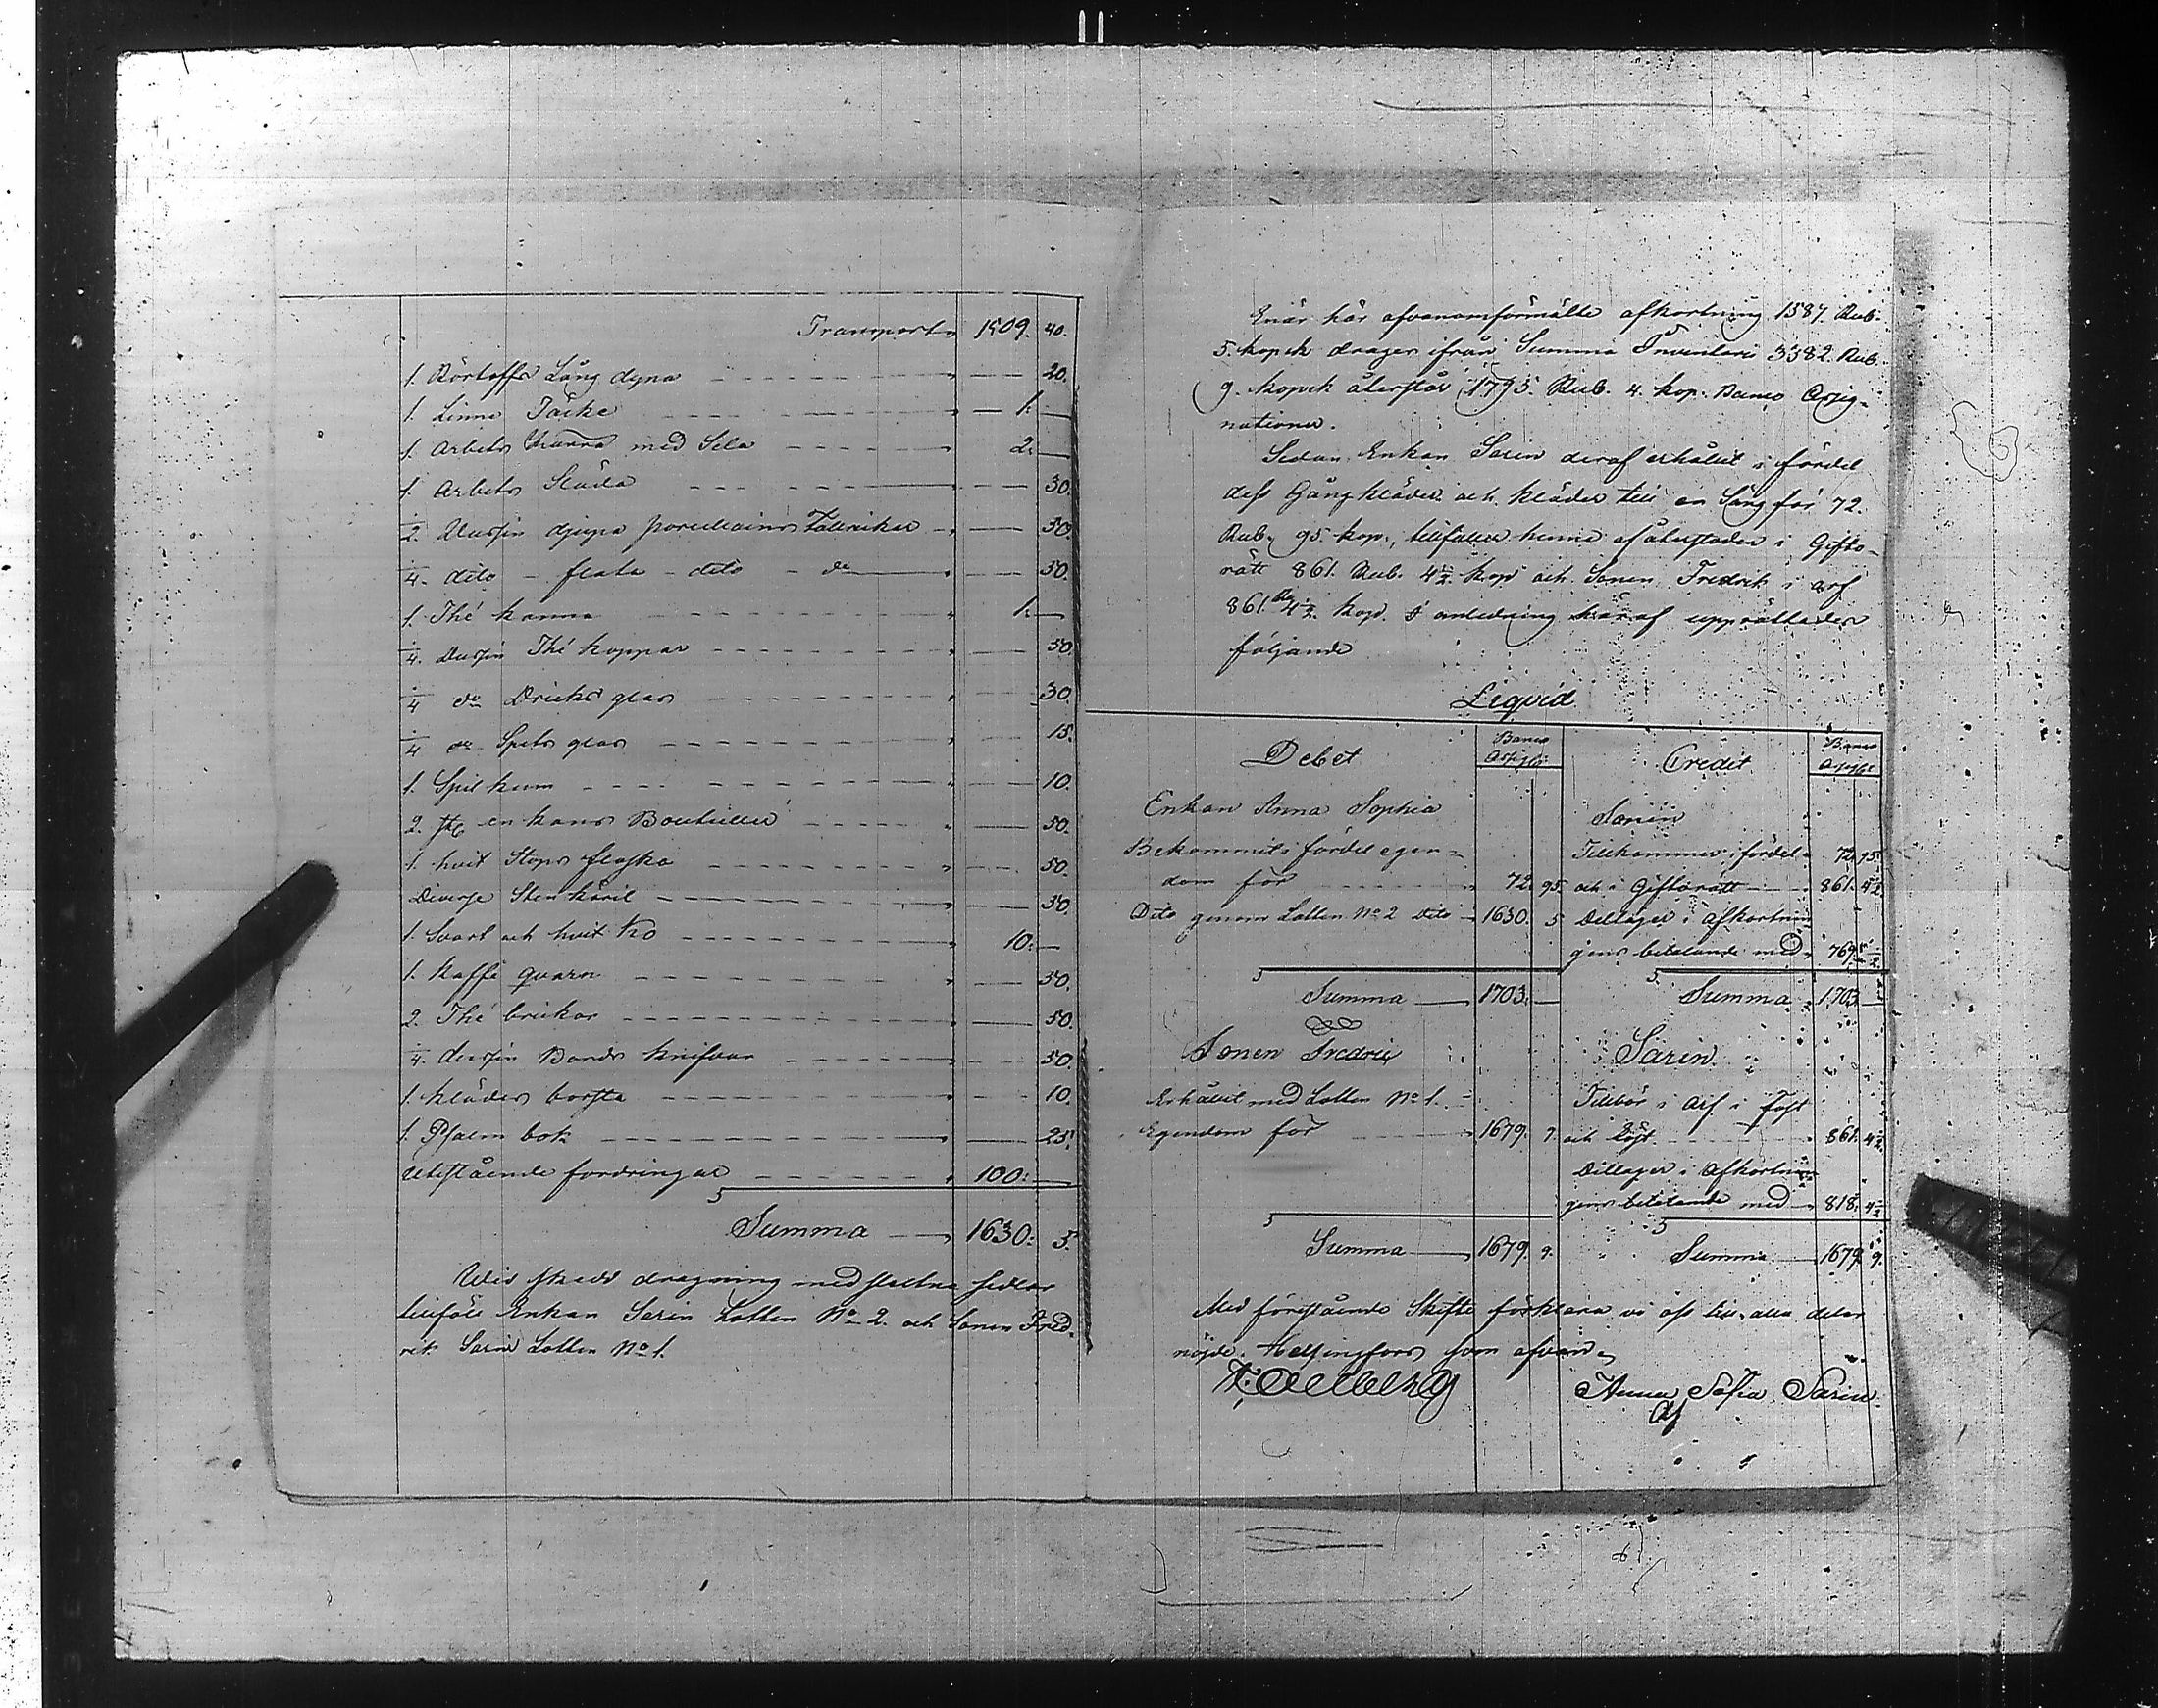 Transport 1509. 40.
1. Körtoffs Läng dyna 20.
1. Linne Täcke 1.
1. Arbets Kärra med Sela 2.
1. Arbets Släda 30.
1/2. Dussin djupa porcellains Tallrikar 50.
1/4. dito - flata - dito - do 50.
1. Thé kanna 1.
1/4. Dussin Thé koppar 50.
1/4 do Dricks glas 30.
1/4 do Spets glas 15.
1. Spil kum 10.
2. st en kans Bouteiller 50.
1. hvit Stops flaska 50.
Diverse Sten käril 50.
1. Svart och hvit Ko 10.
1. Kaffé quarn 50.
2. Thé brickor 50.
1/4. dussin Bords knifvar 50.
1. Kläders borsta 10.
1. Psalm bok 25.
Utestående fordringar 100:
Summa 1630: 5.
Wid skedd dragning med slutna sedlar
tillföll Enkan Sarin Lotten No 2. och Sonen Fred-
rik Sarin Lotten No 1.
Enär här ofvanomförmälte afkortning 1587. Rub.
5. kopek drages ifrån Summa Inventarii 3382. Rub.
9. kopek återstår 1795. Rub. 4. kop. Banco Assig-
nationer.
Sedan Enkan Sarin deraf erhållit i fördel
dess Gångkläder och kläder till en Säng för 72.
Rub. 95. kop., tillfaller henne af återstoden i Gifto-
rätt 861. Rub. 4 1/2 kop och Sonen Fredrik i arf
861. Rb 4 1/2 kop. I anledning häraf upprättades
följande
Liqvid
Debet Banco Assigt: Credit Banco Assigt:
Enkan Anna Sophia Sarin
Bekommit i fördel egen- Tillkommer i fördel 72. 95.
dom för 72. 95. och i Giftorätt 861. 4 1/2.
Dito genom Lotten No 2 dito 1630. 5 Deltager i afkortnin
gens betalande med 769. 1/2.
Summa 1703. Summa 1703.
Sonen Fredric Sarin.
Erhållit med Lotten No 1. Tillhör i Arf i fast
Egendom för 1679. 9. och löst 861. 4 1/2
Deltager i Afkortnin
gens betalande med 818. 4 1/2
Summa 1679. 9. Summa 1679. 9.
Med förestående Skifte förklara vi oss till alla delar
nöjde. Helsingfors som ofvan
Anna Sofia Sarin